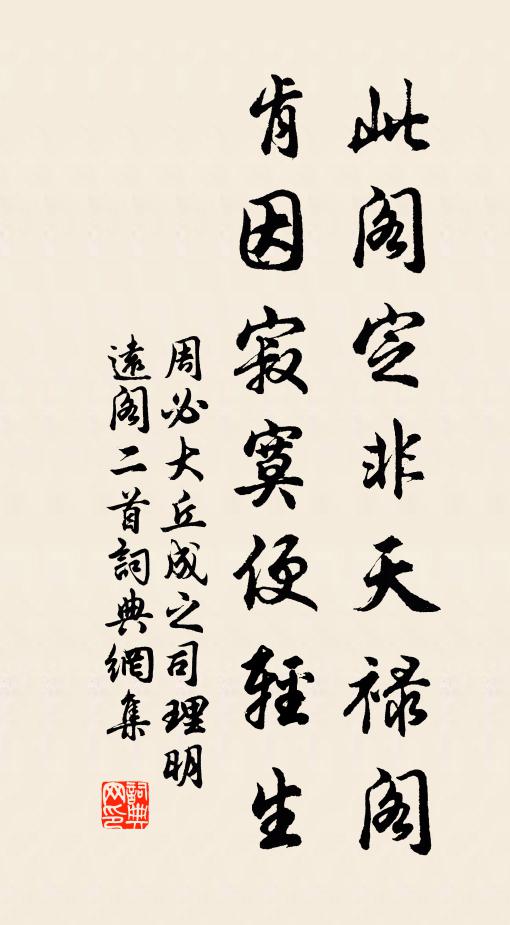 此閣定非天禄閣
肯因寂寞便輕生
周必大丘成之司理明
遠閣二首詞典網集
詞典网印